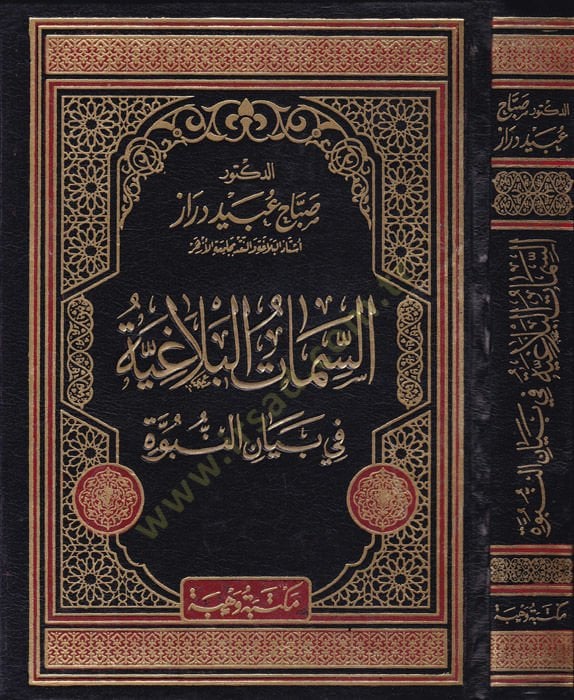 الدكتور
صباح عبيد دراز
أستاذ البلاغة والنقد بجامعة الأزهر
السِّمَاتُ البَلَاغِيَّةُ
في بَيَانِ النُّبُوَّة
مكتبة وهبة
الدكتور صباح
عبيد دراز
السِّمَاتُ البَلَاغِيَّةُ في بَيَانِ النُّبُوَّة
مكتبة وهبة